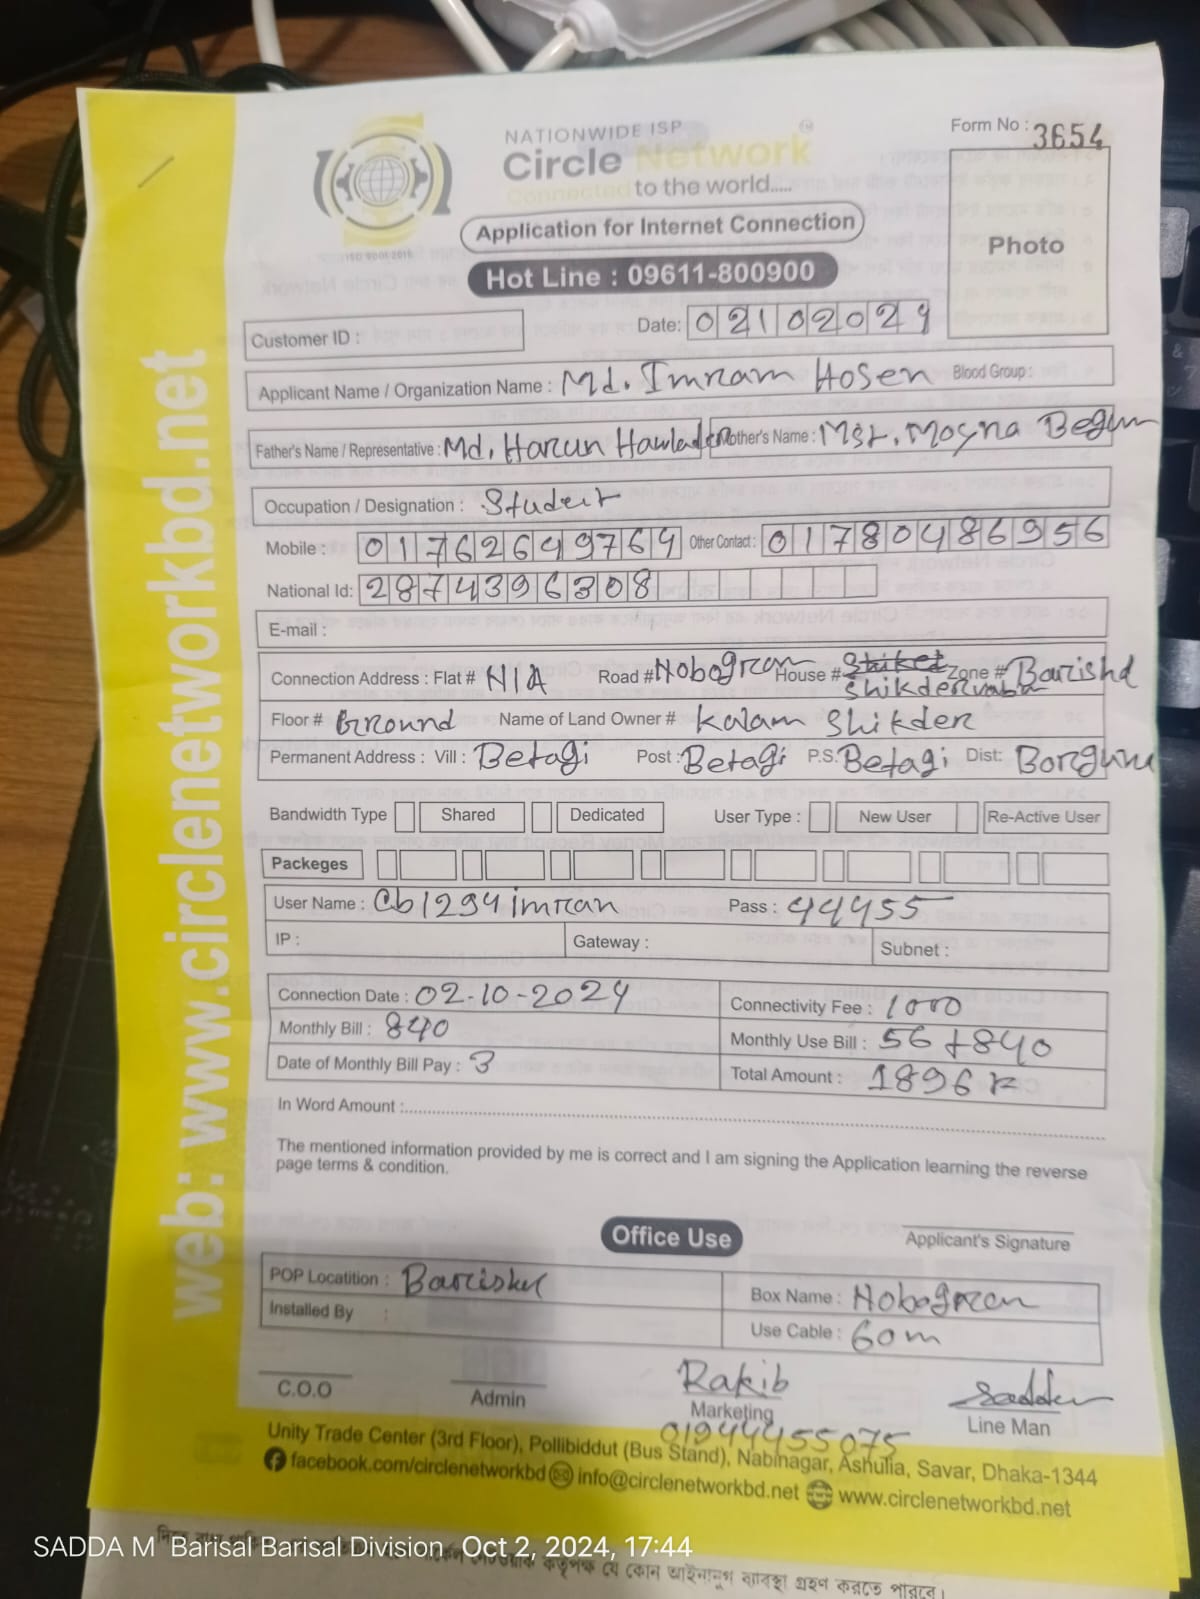 NATIONWIDE ISP
Circle Network
Connected to the world.....
ISO 9001:2015
Form No : 3654
Application for Internet Connection
Photo
Hot Line : 09611-800900
Customer ID :
Date: 02102024
Applicant Name / Organization Name : Md. Imram Hosen Blood Group:
Father's Name / Representative : Md. Harun Hawlader Mother's Name : Mst. Moyna Begum
Occupation / Designation : Student
Mobile : 01762649764 Other Contact : 01780486956
National Id: 2874396308
E-mail :
Connection Address : Flat # N/A Road # Nobogram House # Shikder Zone # Barishal
Floor # Ground Name of Land Owner # Kalam Shikder
Permanent Address : Vill : Betagi Post : Betagi P.S. Betagi Dist: Borguna
Bandwidth Type Shared Dedicated User Type : New User Re-Active User
Packeges
User Name : Cb1294imran Pass : 44455
IP : Gateway : Subnet :
Connection Date : 02-10-2024 Connectivity Fee : 1000
Monthly Bill : 840 Monthly Use Bill : 56+840
Date of Monthly Bill Pay : 3 Total Amount : 1896
In Word Amount :
The mentioned information provided by me is correct and I am signing the Application learning the reverse
page terms & condition.
Office Use
Applicant's Signature
POP Locatition : Barishal Box Name : Nobogram
Installed By : Use Cable : 60m
Rakib
C.O.O Admin Marketing Line Man
01944455075
Unity Trade Center (3rd Floor), Pollibiddut (Bus Stand), Nabinagar, Ashulia, Savar, Dhaka-1344
facebook.com/circlenetworkbd info@circlenetworkbd.net www.circlenetworkbd.net
web: www.circlenetworkbd.net
SADDA M Barisal Barisal Division Oct 2, 2024, 17:44
কর্তৃপক্ষ যে কোন আইনানুগ ব্যবস্থা গ্রহণ করতে পারবে।